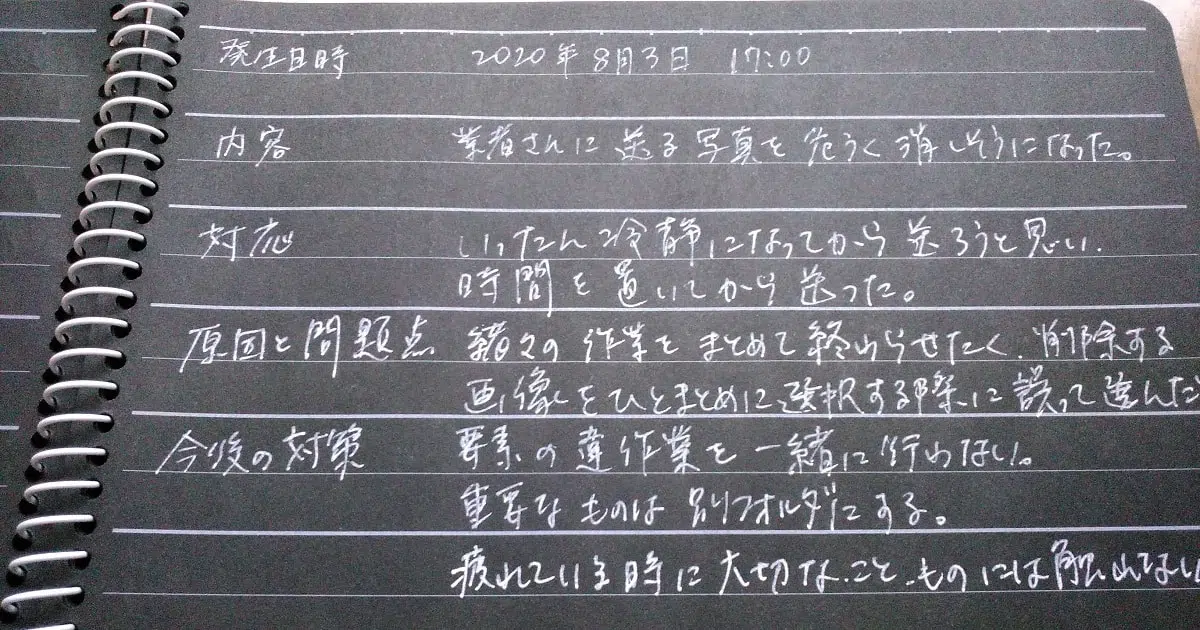 発生日時 2020年8月3日 17:00
内容 業者さんに送る写真を危うく消しそうになった。
対応 いったん冷静になってから送ろうと思い、
時間を置いてから送った。
原因と問題点 諸々の作業をまとめて終わらせたく、削除する
画像をひとまとめに選択する際に誤って選んだ
今後の対策 要素の違作業を一緒に行わない。
重要なものは別フォルダにする。
疲れている時に大切なこと、ものには触れない